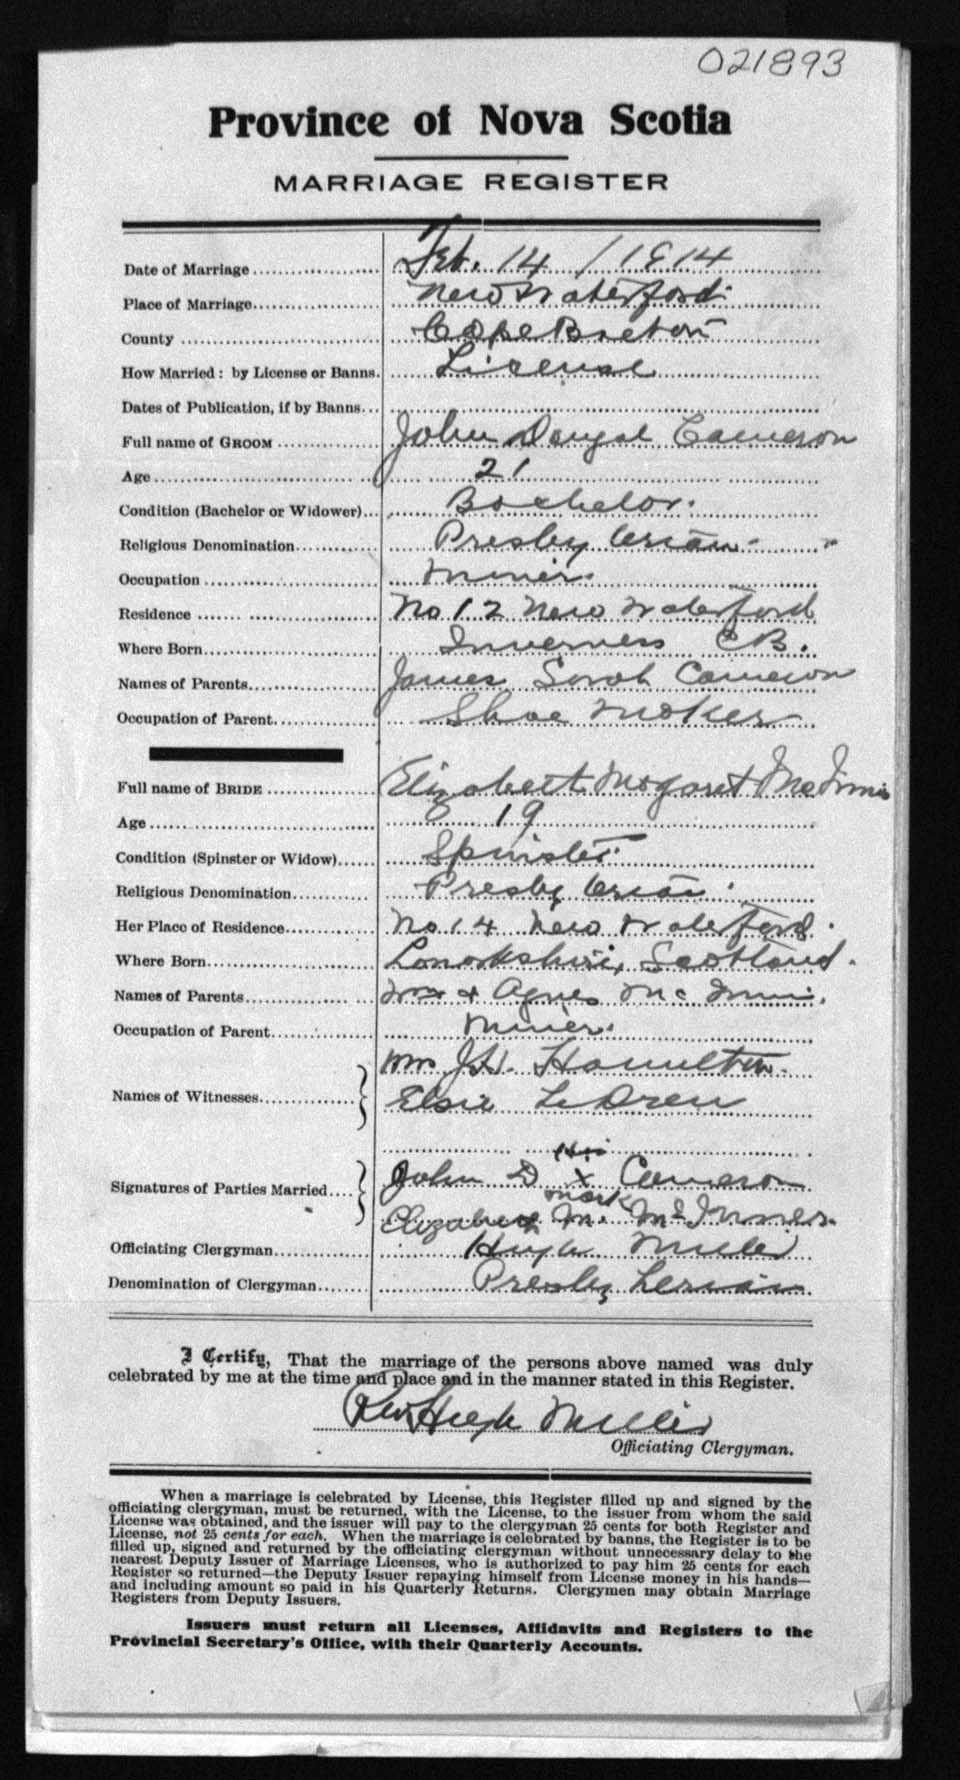 021893
Province of Nova Scotia
MARRIAGE REGISTER
Date of Marriage Feb. 14 / 1914
Place of Marriage New Waterford
County Cape Breton
How Married: by License or Banns. License
Dates of Publication, if by Banns
Full name of GROOM John Dougal Cameron
Age 21
Condition (Bachelor or Widower) Bachelor.
Religious Denomination Presbyterian
Occupation Miner.
Residence No 12 New Waterford
Where Born Inverness CB.
Names of Parents James Sarah Cameron
Occupation of Parent Shoe Maker
Full name of BRIDE Elizabeth Margaret McInnis
Age 19
Condition (Spinster or Widow) Spinster
Religious Denomination Presbyterian.
Her Place of Residence No. 14 New Waterford.
Where Born Lanarkshire, Scotland.
Names of Parents Wm & Agnes Mc Innis.
Occupation of Parent Miner.
Names of Witnesses Mrs J.H. Hamilton.
Elsie LeDrew
Signatures of Parties Married John D his x mark Cameron
Elizabeth M. McInnes.
Officiating Clergyman Hugh Miller
Denomination of Clergyman Presbyterian
I Certify, That the marriage of the persons above named was duly
celebrated by me at the time and place and in the manner stated in this Register.
Rev Hugh Miller
Officiating Clergyman.
When a marriage is celebrated by License, this Register filled up and signed by the
officiating clergyman, must be returned, with the License, to the issuer from whom the said
License was obtained, and the issuer will pay to the clergyman 25 cents for both Register and
License, not 25 cents for each. When the marriage is celebrated by banns, the Register is to be
filled up, signed and returned by the officiating clergyman without unnecessary delay to the
nearest Deputy Issuer of Marriage Licenses, who is authorized to pay him 25 cents for each
Register so returned—the Deputy Issuer repaying himself from License money in his hands—
and including amount so paid in his Quarterly Returns. Clergymen may obtain Marriage
Registers from Deputy Issuers.
Issuers must return all Licenses, Affidavits and Registers to the
Provincial Secretary's Office, with their Quarterly Accounts.